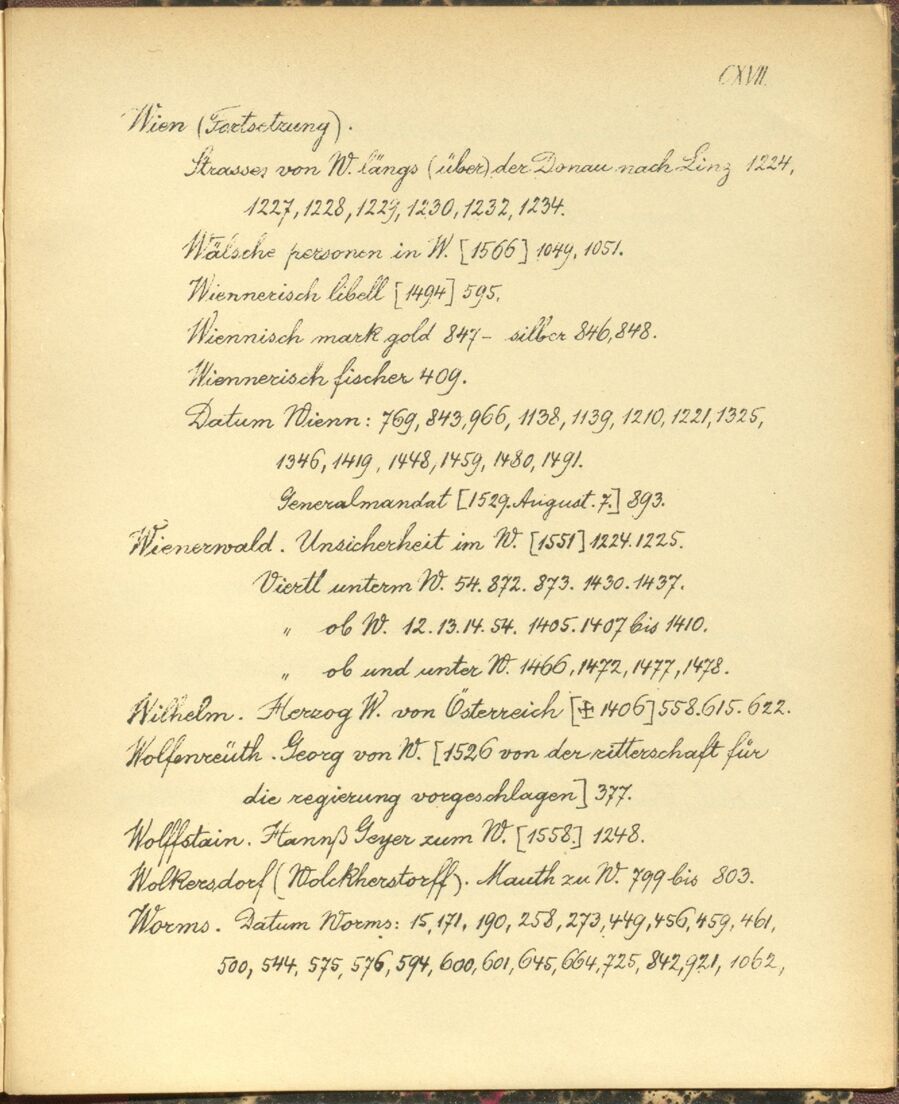 CXVII
Wien (Fortsetzung).
Strassen von W. längs (über) der Donau nach Linz 1224,
1227, 1228, 1229, 1230, 1232, 1234.
Wälsche personen in W. [1566] 1049, 1051.
Wiennerisch libell [1494] 595.
Wiennisch mark gold 847 – silber 846, 848.
Wiennerisch fischer 409.
Datum Wienn: 769, 843, 966, 1138, 1139, 1210, 1221, 1325,
1346, 1419, 1448, 1459, 1480, 1491.
Generalmandat [1529. August. 7.] 893.
Wienerwald. Unsicherheit im W. [1551] 1224. 1225.
Viertl unterm W. 54. 872. 873. 1430. 1437.
„ ob W. 12. 13. 14. 54. 1405. 1407 bis 1410.
„ ob und unter W. 1466, 1472, 1477, 1478.
Wilhelm. Herzog W. von Österreich [✠ 1406] 558. 615. 622.
Wolfenreüth. Georg von W. [1526 von der ritterschaft für
die regierung vorgeschlagen] 377.
Wolffstain. Hannß Geyer zum W. [1558] 1248.
Wolkersdorf (Wolckherstorff). Mauth zu W. 799 bis 803.
Worms. Datum Worms: 15, 171, 190, 258, 273, 449, 456, 459, 461,
500, 544, 575, 576, 594, 600, 601, 645, 664, 725, 842, 921, 1062,